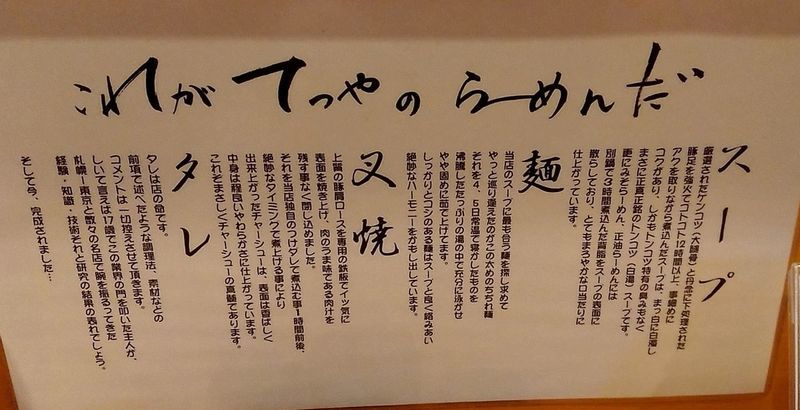 これがてつやのらーめんだ
スープ
厳選されたゲンコツ（大腿骨）と丹念に下処理された
豚足を強火でコトコト12時間以上、事細めに
アクを取りながら煮込んだスープは、まっ白に白濁し
コクがあり、しかもトンコツ特有の臭みもなく
まさに正真正銘のトンコツ（白湯）スープです。
更にみそらーめん、正油らーめんには
別鍋で3時間煮込んだ背脂をスープの表面に
散らしており、とてもまろやかな口当たりに
仕上がっています。
麺
当店のスープに最も合う麺を探し求めて
やっと巡り逢えたのがこの太めのちぢれ麺
それを4、5日常温で寝かしたものを
沸騰したたっぷりの湯の中で充分に泳がせ
やや固めに茹で上げてます。
しっかりとコシのある麺はスープと良く絡みあい
絶妙なハーモニーをかもし出しています。
叉焼
上質の豚肩ロースを専用の鉄板でイッ気に
表面を焼き上げ、肉のうま味である肉汁を
残す事なく閉じ込めました。
それを当店独自のつけダレで煮込む事1時間前後、
絶妙なタイミングで煮上げる事により
出来上がったチャーシューは、表面は香ばしく
中身は程良いやわらかさに仕上がっています。
これぞまさしくチャーシューの真髄であります。
タレ
タレは店の命です。
前項で述べたような調理法、素材などの
コメントは一切控えさせて頂きます。
しいて言えば17歳でこの業界の門を叩いた主人が、
札幌ー東京と数々の名店で腕を振るってきた
経験・知識・技術それと研究の結果の表れでしょう。
そして今、完成されました…